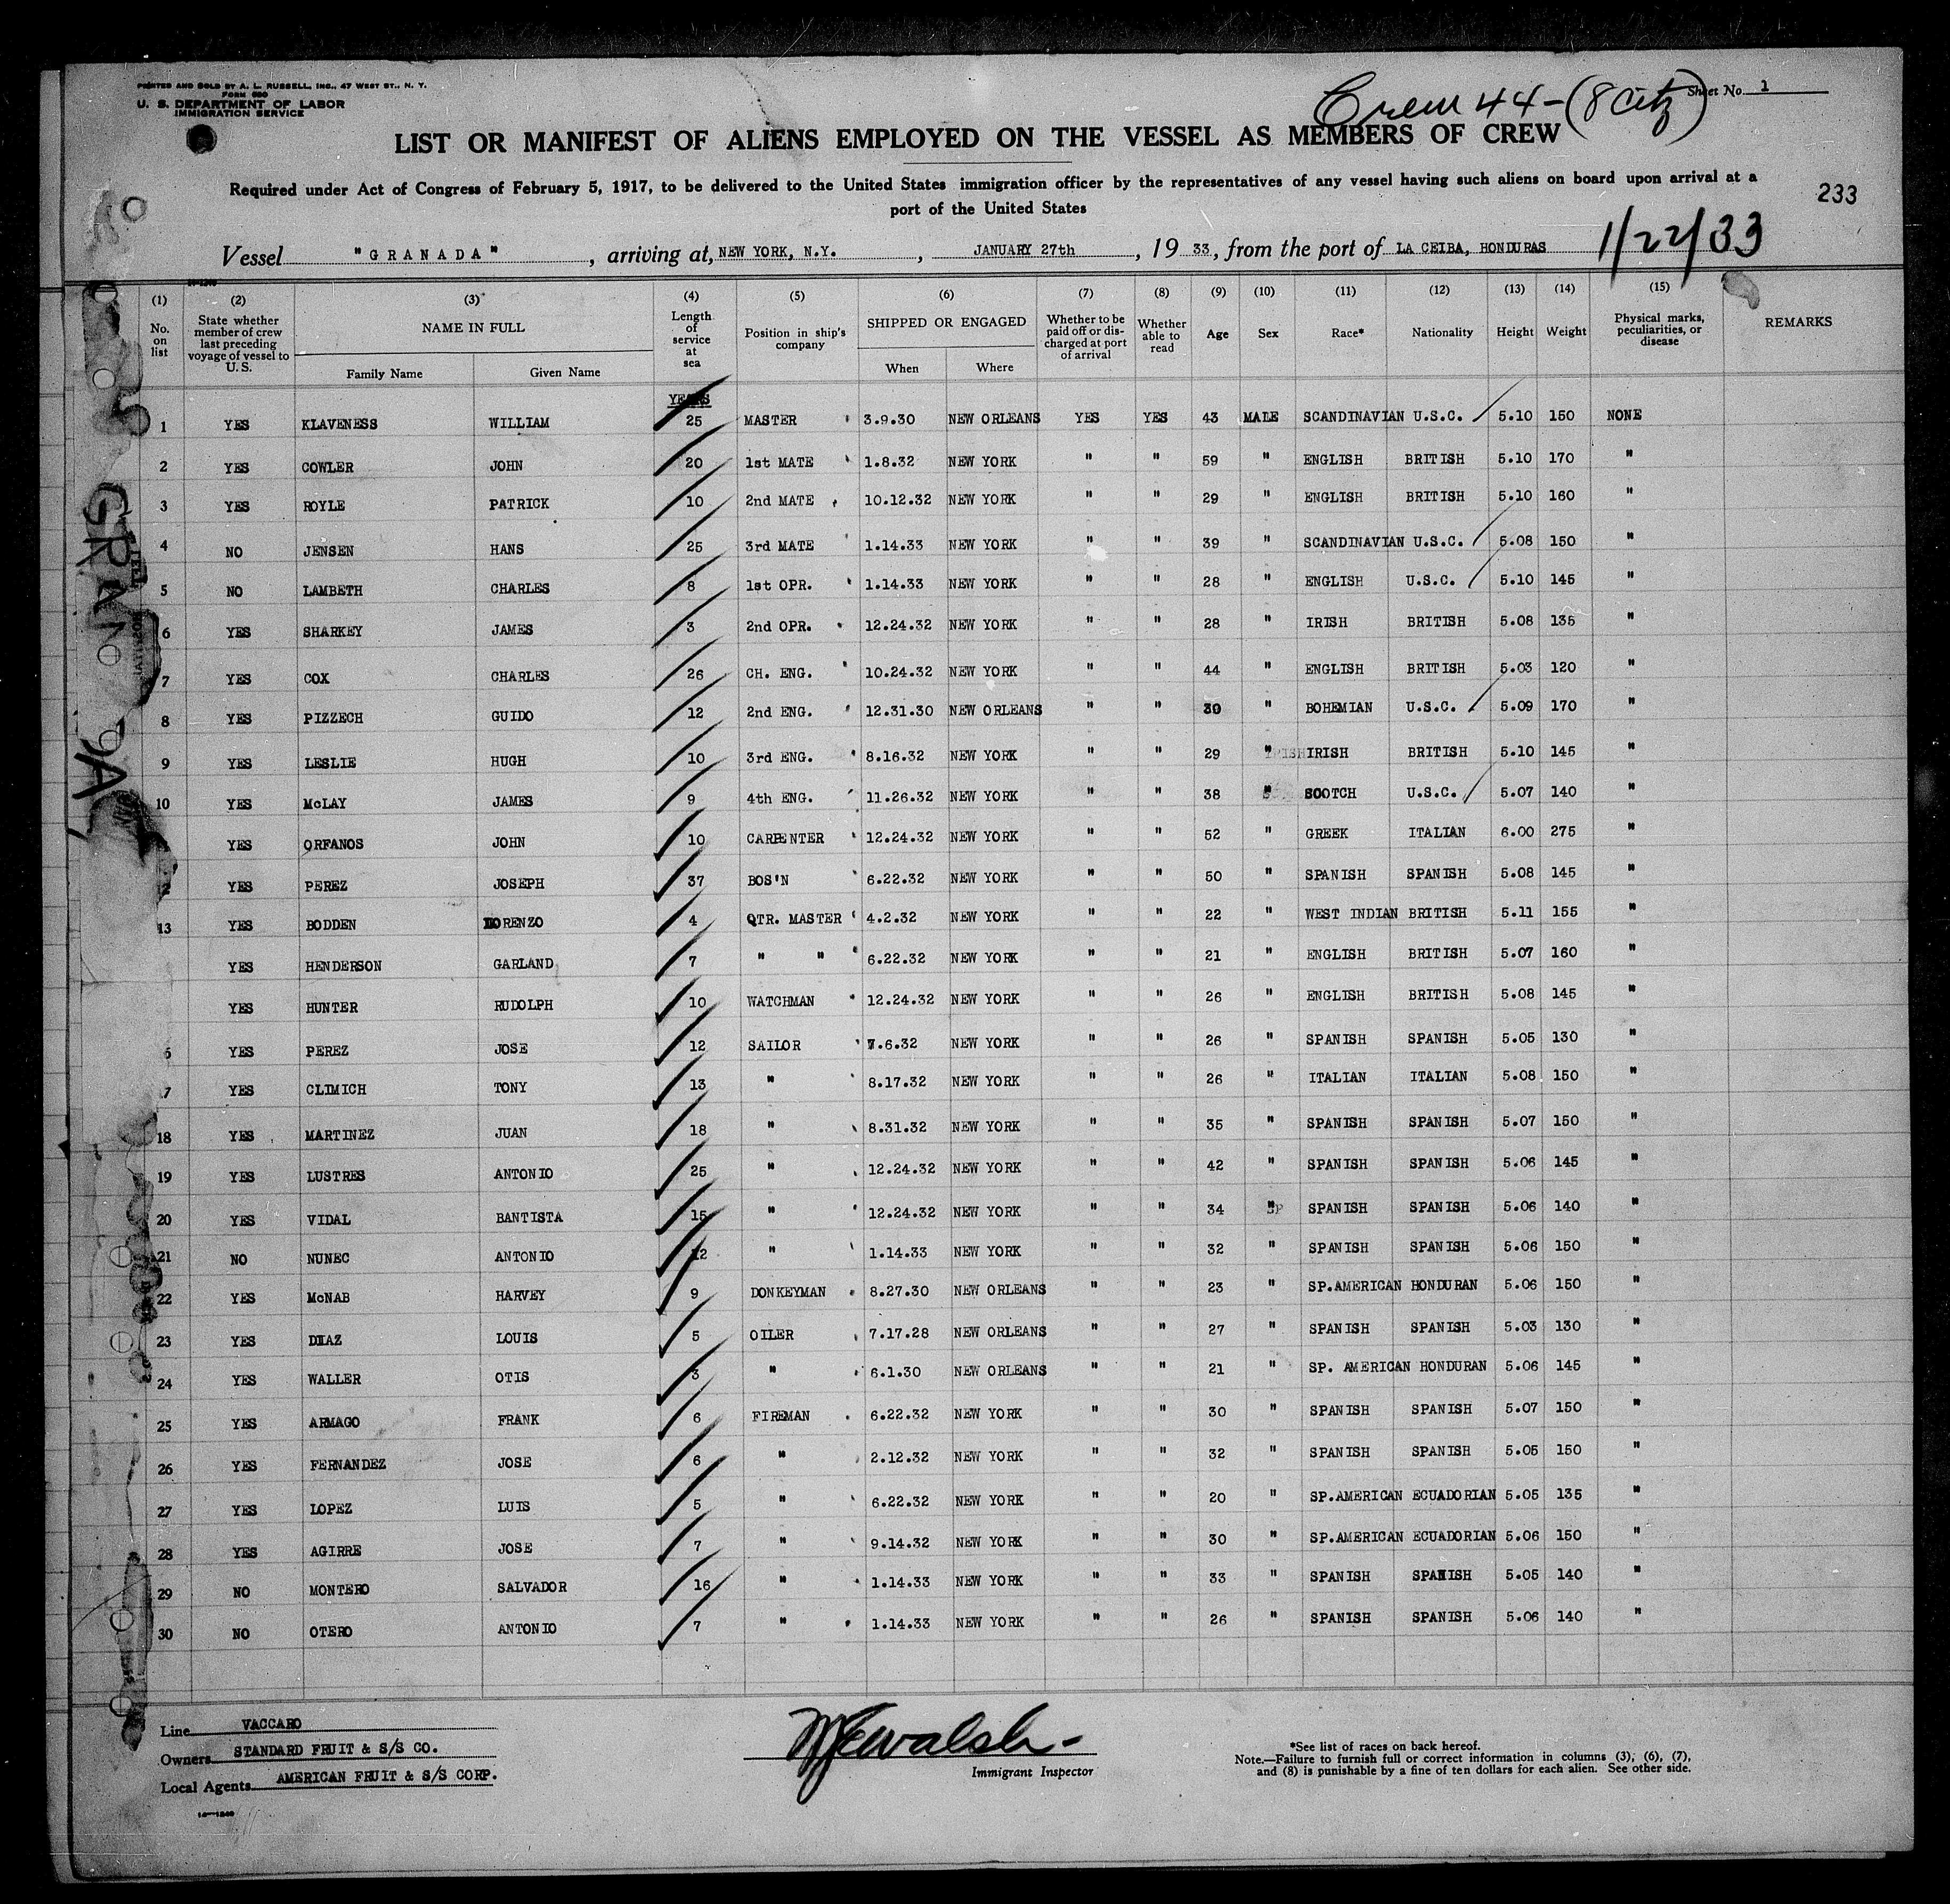 PRINTED AND SOLD BY A. L. RUSSELL, INC., 47 WEST ST., N. Y.
FORM 680
U. S. DEPARTMENT OF LABOR
IMMIGRATION SERVICE
Crew 44-(8 Citz)
Sheet No. 1
LIST OR MANIFEST OF ALIENS EMPLOYED ON THE VESSEL AS MEMBERS OF CREW
Required under Act of Congress of February 5, 1917, to be delivered to the United States immigration officer by the representatives of any vessel having such aliens on board upon arrival at a
port of the United States
233
Vessel "GRANADA", arriving at, NEW YORK, N.Y., JANUARY 27th, 19 33, from the port of LA CEIBA, HONDURAS 1/22/33
(1) (2) (3) (4) (5) (6) (7) (8) (9) (10) (11) (12) (13) (14) (15)
No. on list | State whether member of crew last preceding voyage of vessel to U. S. | NAME IN FULL Family Name Given Name | Length of service at sea | Position in ship's company | SHIPPED OR ENGAGED When Where | Whether to be paid off or discharged at port of arrival | Whether able to read | Age | Sex | Race* | Nationality | Height | Weight | Physical marks, peculiarities, or disease | REMARKS
YEARS
1 YES KLAVENESS WILLIAM 25 MASTER 3.9.30 NEW ORLEANS YES YES 43 MALE SCANDINAVIAN U.S.C. 5.10 150 NONE
2 YES COWLER JOHN 20 1st MATE 1.8.32 NEW YORK " " 59 " ENGLISH BRITISH 5.10 170 "
3 YES ROYLE PATRICK 10 2nd MATE 10.12.32 NEW YORK " " 29 " ENGLISH BRITISH 5.10 160 "
4 NO JENSEN HANS 25 3rd MATE 1.14.33 NEW YORK " " 39 " SCANDINAVIAN U.S.C. 5.08 150 "
5 NO LAMBETH CHARLES 8 1st OPR. 1.14.33 NEW YORK " " 28 " ENGLISH U.S.C. 5.10 145 "
6 YES SHARKEY JAMES 3 2nd OPR. 12.24.32 NEW YORK " " 28 " IRISH BRITISH 5.08 135 "
7 YES COX CHARLES 26 CH. ENG. 10.24.32 NEW YORK " " 44 " ENGLISH BRITISH 5.03 120 "
8 YES PIZZECH GUIDO 12 2nd ENG. 12.31.30 NEW ORLEANS " " 30 " BOHEMIAN U.S.C. 5.09 170 "
9 YES LESLIE HUGH 10 3rd ENG. 8.16.32 NEW YORK " " 29 " IRISH BRITISH 5.10 145 "
10 YES McLAY JAMES 9 4th ENG. 11.26.32 NEW YORK " " 38 " SCOTCH U.S.C. 5.07 140 "
YES ORFANOS JOHN 10 CARPENTER 12.24.32 NEW YORK " " 52 " GREEK ITALIAN 6.00 275 "
2 YES PEREZ JOSEPH 37 BOS'N 6.22.32 NEW YORK " " 50 " SPANISH SPANISH 5.08 145 "
13 YES BODDEN LORENZO 4 QTR. MASTER 4.2.32 NEW YORK " " 22 " WEST INDIAN BRITISH 5.11 155 "
YES HENDERSON GARLAND 7 " " 6.22.32 NEW YORK " " 21 " ENGLISH BRITISH 5.07 160 "
YES HUNTER RUDOLPH 10 WATCHMAN 12.24.32 NEW YORK " " 26 " ENGLISH BRITISH 5.08 145 "
6 YES PEREZ JOSE 12 SAILOR 7.6.32 NEW YORK " " 26 " SPANISH SPANISH 5.05 130 "
7 YES CLIMICH TONY 13 " 8.17.32 NEW YORK " " 26 " ITALIAN ITALIAN 5.08 150 "
18 YES MARTINEZ JUAN 18 " 8.31.32 NEW YORK " " 35 " SPANISH SPANISH 5.07 150 "
19 YES LUSTRES ANTONIO 25 " 12.24.32 NEW YORK " " 42 " SPANISH SPANISH 5.06 145 "
20 YES VIDAL BANTISTA 15 " 12.24.32 NEW YORK " " 34 " SPANISH SPANISH 5.06 140 "
21 NO NUNEC ANTONIO 12 " 1.14.33 NEW YORK " " 32 " SPANISH SPANISH 5.06 150 "
22 YES McNAB HARVEY 9 DONKEYMAN 8.27.30 NEW ORLEANS " " 23 " SP.AMERICAN HONDURAN 5.06 150 "
23 YES DIAZ LOUIS 5 OILER 7.17.28 NEW ORLEANS " " 27 " SPANISH SPANISH 5.03 130 "
24 YES WALLER OTIS 3 " 6.1.30 NEW ORLEANS " " 21 " SP. AMERICAN HONDURAN 5.06 145 "
25 YES ARMAGO FRANK 6 FIREMAN 6.22.32 NEW YORK " " 30 " SPANISH SPANISH 5.07 150 "
26 YES FERNANDEZ JOSE 6 " 2.12.32 NEW YORK " " 32 " SPANISH SPANISH 5.05 150 "
27 YES LOPEZ LUIS 5 " 6.22.32 NEW YORK " " 20 " SP.AMERICAN ECUADORIAN 5.05 135 "
28 YES AGIRRE JOSE 7 " 9.14.32 NEW YORK " " 30 " SP.AMERICAN ECUADORIAN 5.06 150 "
29 NO MONTERO SALVADOR 16 " 1.14.33 NEW YORK " " 33 " SPANISH SPANISH 5.05 140 "
30 NO OTERO ANTONIO 7 " 1.14.33 NEW YORK " " 26 " SPANISH SPANISH 5.06 140 "
Line VACCARO
Owners STANDARD FRUIT & S/S CO.
Local Agents AMERICAN FRUIT & S/S CORP.
Immigrant Inspector
*See list of races on back hereof.
Note.—Failure to furnish full or correct information in columns (3), (6), (7),
and (8) is punishable by a fine of ten dollars for each alien. See other side.
14—1240